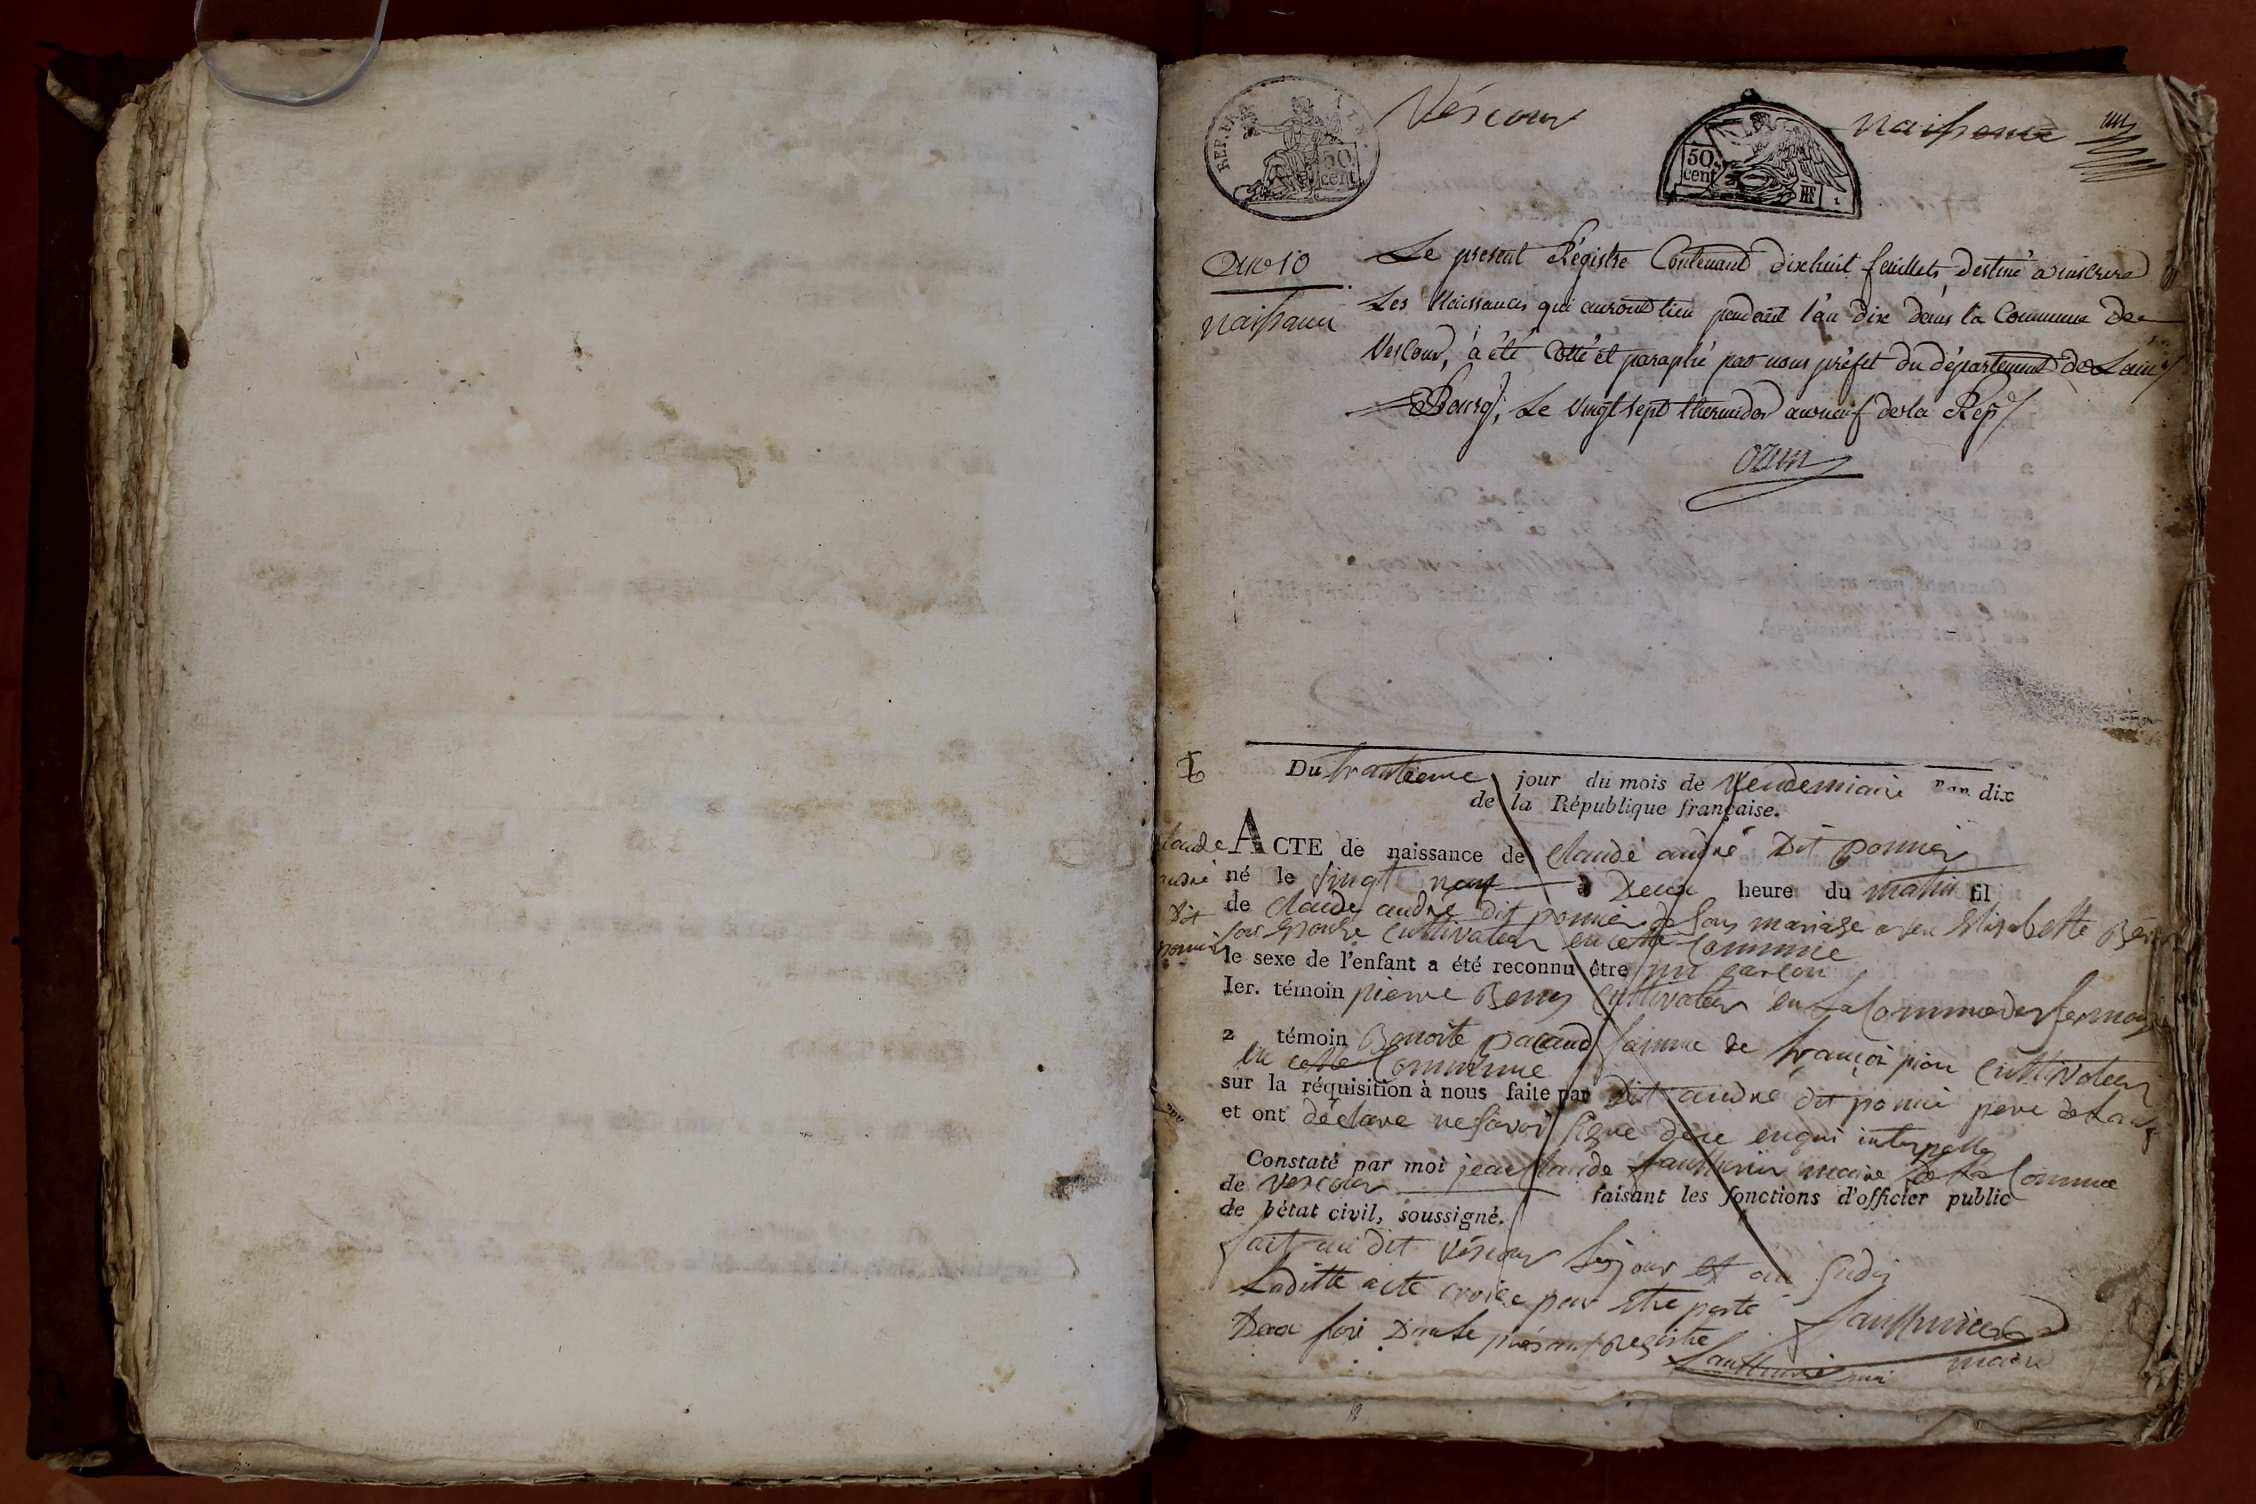 REP. FRA
50
cent
Vescour
50
cent
RF
1
Naissance
un
An 10
Naissance
Le present Régistre Contenant dixhuit feuillets, destiné a inscrire
Les Naissances qui auront lieu pendant l'an dix dans la Commune de
Vescour, a été Cotté et paraphé par nous préfet du département de Lain
Bourg, Le vingt sept thermidor an neuf de la Rep
Ozun
Du trantieme jour du mois de Vendemiaire l'an dix
de la République française.
Claude
andré
dit
pomier
ACTE de naissance de Claude andré Dit pomier
né le vingt neuf à Deux heure du matin fil
de Claude andré dit pomier de son mariage avec Elisabette
son epouse Cultivateur en cette Commune
le sexe de l'enfant a été reconnu être un garcon
Ier. témoin pierre Cultivateur en La Commune de
2 témoin Benoite pacaud famme de françoi pion Cultivateur
en cette Commune
sur la réquisition à nous faite par Dit andré dit pomie pere de
et ont déclare ne savoir signe de ce enqui interpelle
Constaté par moi jean Claude maire de La Commune
de Vescour faisant les fonctions d'officier public
de l'état civil, soussigné.
fait au dit Vescour Les jour et an susdis
Laditte acte croisée pour etre porté
Deux fois Dans Le présant registre
maire